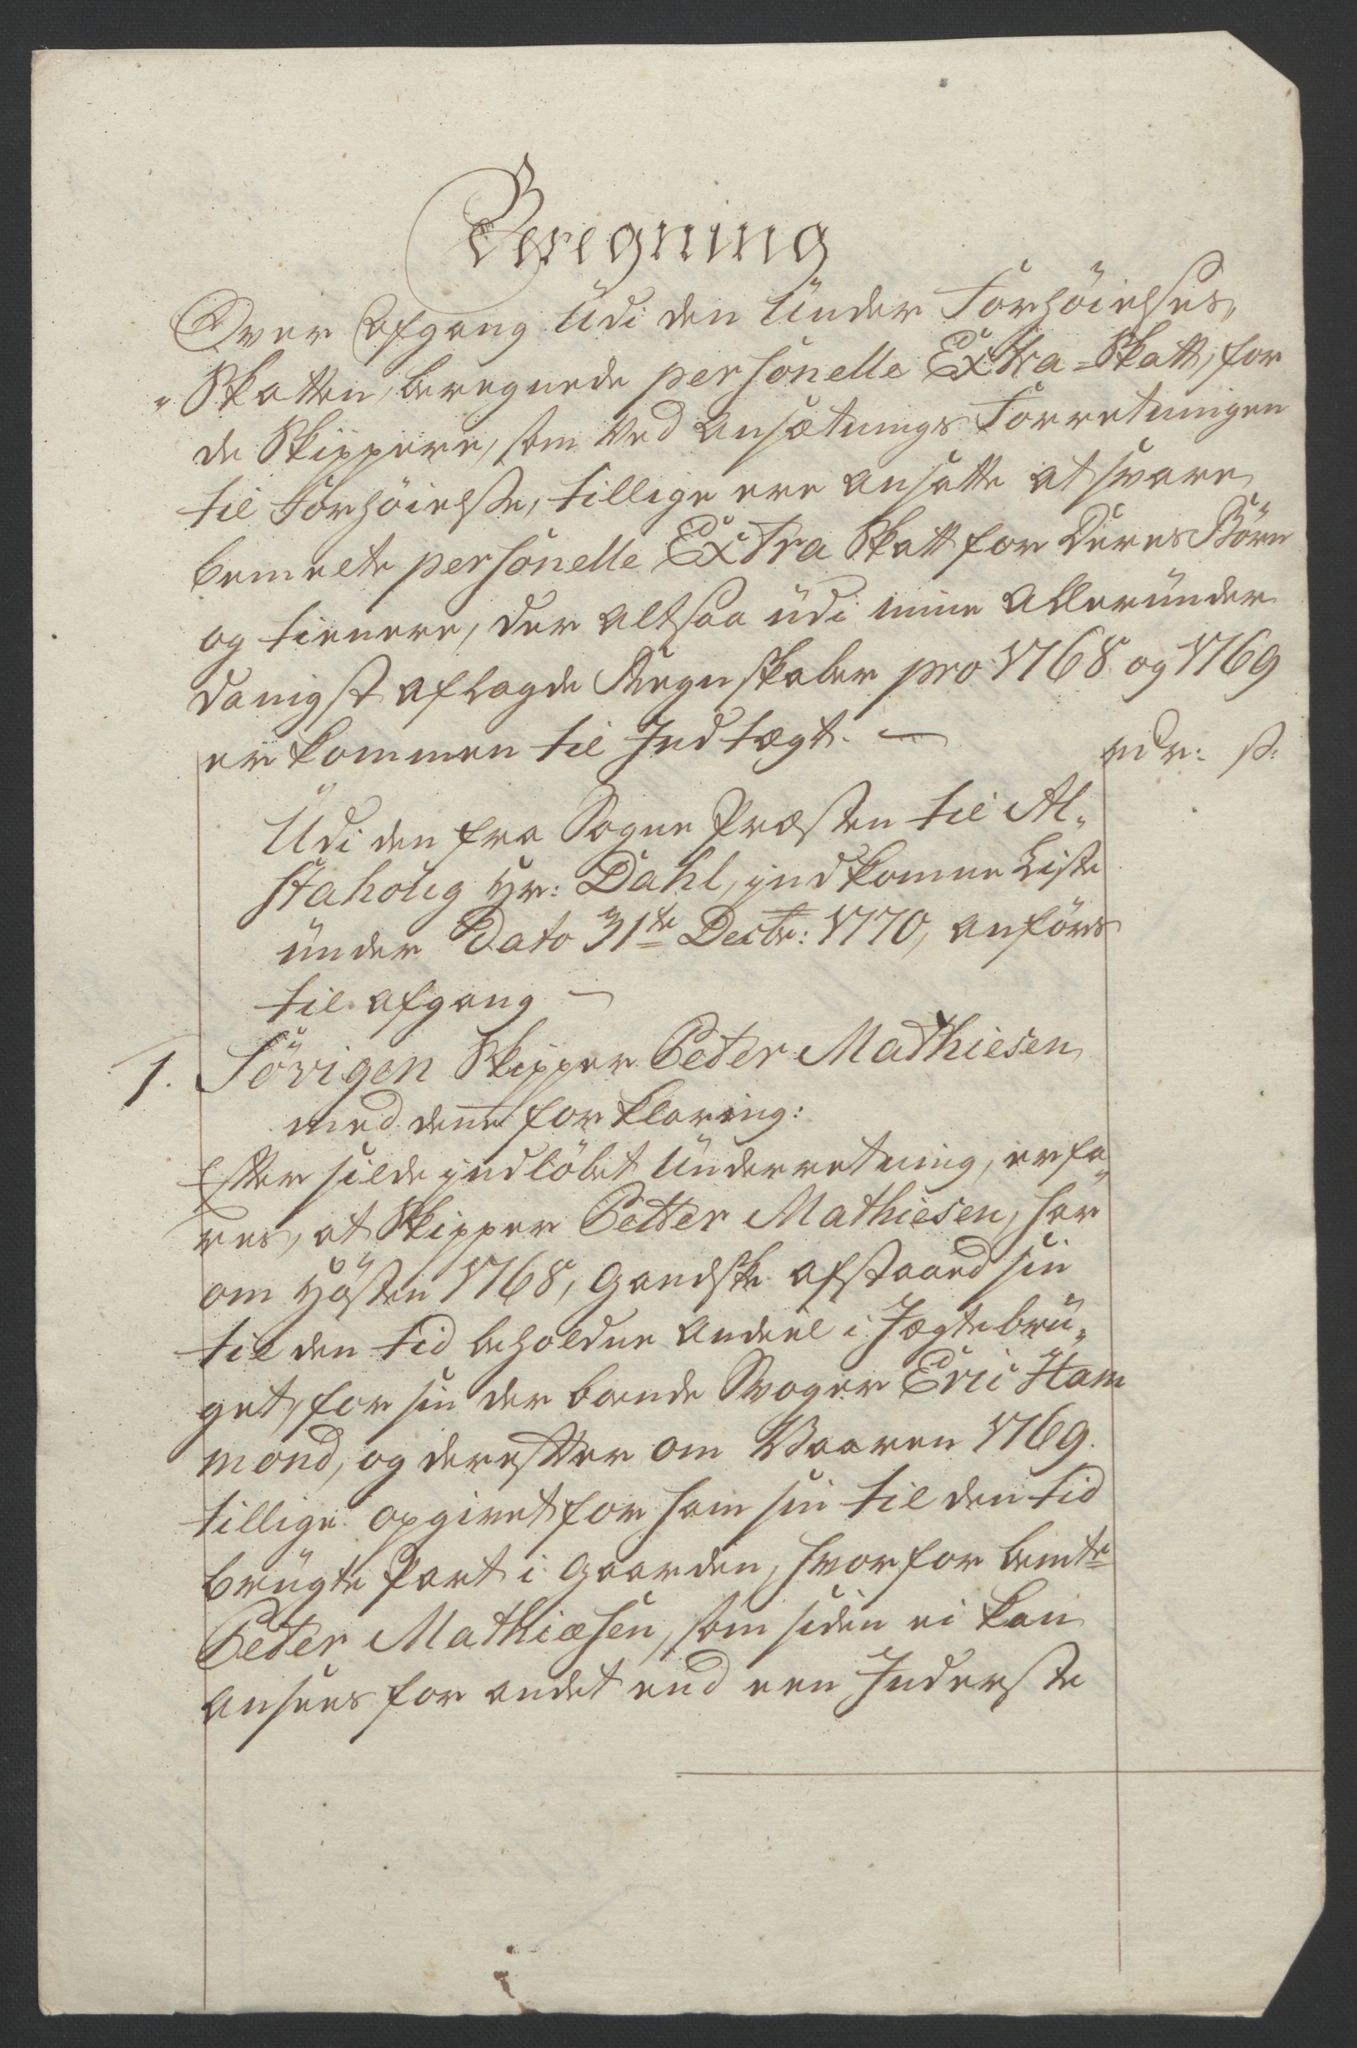 Beregning
Over Afgang Udi den Under Forhøielses„
„Skatten, beregnede personelle Extra-Skatt, for
de Skippere, som ved Ansætnings Forretningen
til Forhøielse, tillige ere ansatte at svare
bemelte personelle Extra Skatt for deres Börn
og tienere, der altsaa udi mine Allerunder
danigst aflagde Regnskaber pro 1768 og 1769
er kommen til Indtægt. —
rdr: s:
Udi den fra Sogne Præsten til Al„
stahoug Hr: Dahl, indkomne Liste
under Dato 31te Decbr: 1770, anförs
til afgang —
1. Sörigen Skipper Peter Mathiesen
med denne forklaring:
Efter silde indlöbet Underretning, erfa„
res, at Skipper Petter Mathiesen, har
om Hösten 1768, gandske afstaaed sin
til den tid beholdne Andeel i Jægtebru„
get, for sin der boende Svoger Eric Ham
mond, og derefter om Vaaren 1769.
tillige opgivet for ham sin til den tid
brugte Part i Gaarden, hvorfor bemte
Peder Mathiæsen, som siden ei kan
ansees for andet end een Inderste